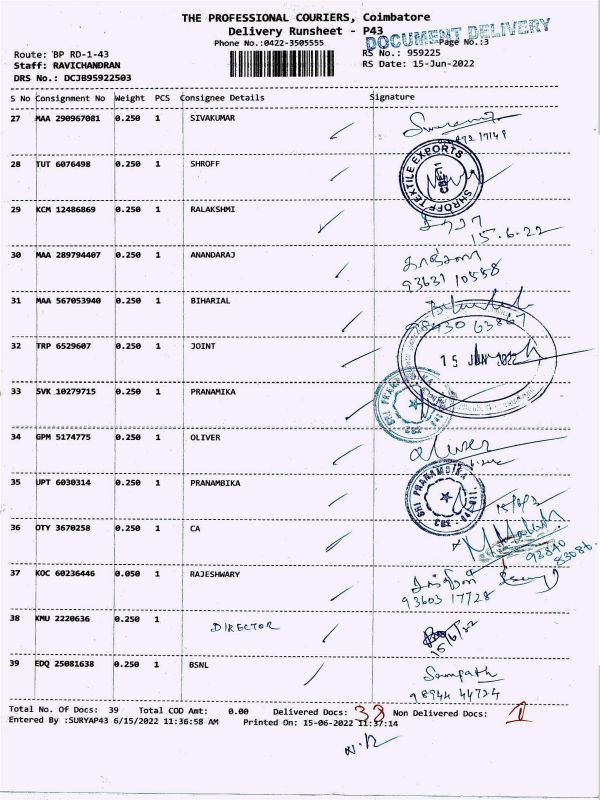 THE PROFESSIONAL COURIERS, Coimbatore
Delivery Runsheet - P43
DOCUMENT DELIVERY
Phone No.:0422-3505555
Page No.:3
Route: BP RD-1-43
RS No.: 959225
Staff: RAVICHANDRAN
RS Date: 15-Jun-2022
DRS No.: DCJB95922503
S No Consignment No Weight PCS Consignee Details Signature
27 MAA 290967081 0.250 1 SIVAKUMAR
28 TUT 6076498 0.250 1 SHROFF
SHROFF TEXTILE EXPORTS
29 KCM 12486869 0.250 1 RALAKSHMI
15.6.22
30 MAA 289794407 0.250 1 ANANDARAJ
93631 10558
31 MAA 567053940 0.250 1 BIHARIAL
98430 63867
32 TRP 6529607 0.250 1 JOINT
15 JUN 2022
33 SVK 10279715 0.250 1 PRANAMIKA
SRI PRANAMBIKA
34 GPM 5174775 0.250 1 OLIVER
Oliver
35 UPT 6030314 0.250 1 PRANAMBIKA
SRI PRANAMBIKA
36 OTY 3670258 0.250 1 CA
93840
83086
37 KOC 60236446 0.050 1 RAJESHWARY
93603 17728
38 KMU 2220636 0.250 1 DIRECTOR
15/6/22
39 EDQ 25081638 0.250 1 BSNL
Sampath
98944 44724
Total No. Of Docs: 39 Total COD Amt: 0.00 Delivered Docs: 38 Non Delivered Docs: 1
Entered By :SURYAP43 6/15/2022 11:36:58 AM Printed On: 15-06-2022 11:37:14